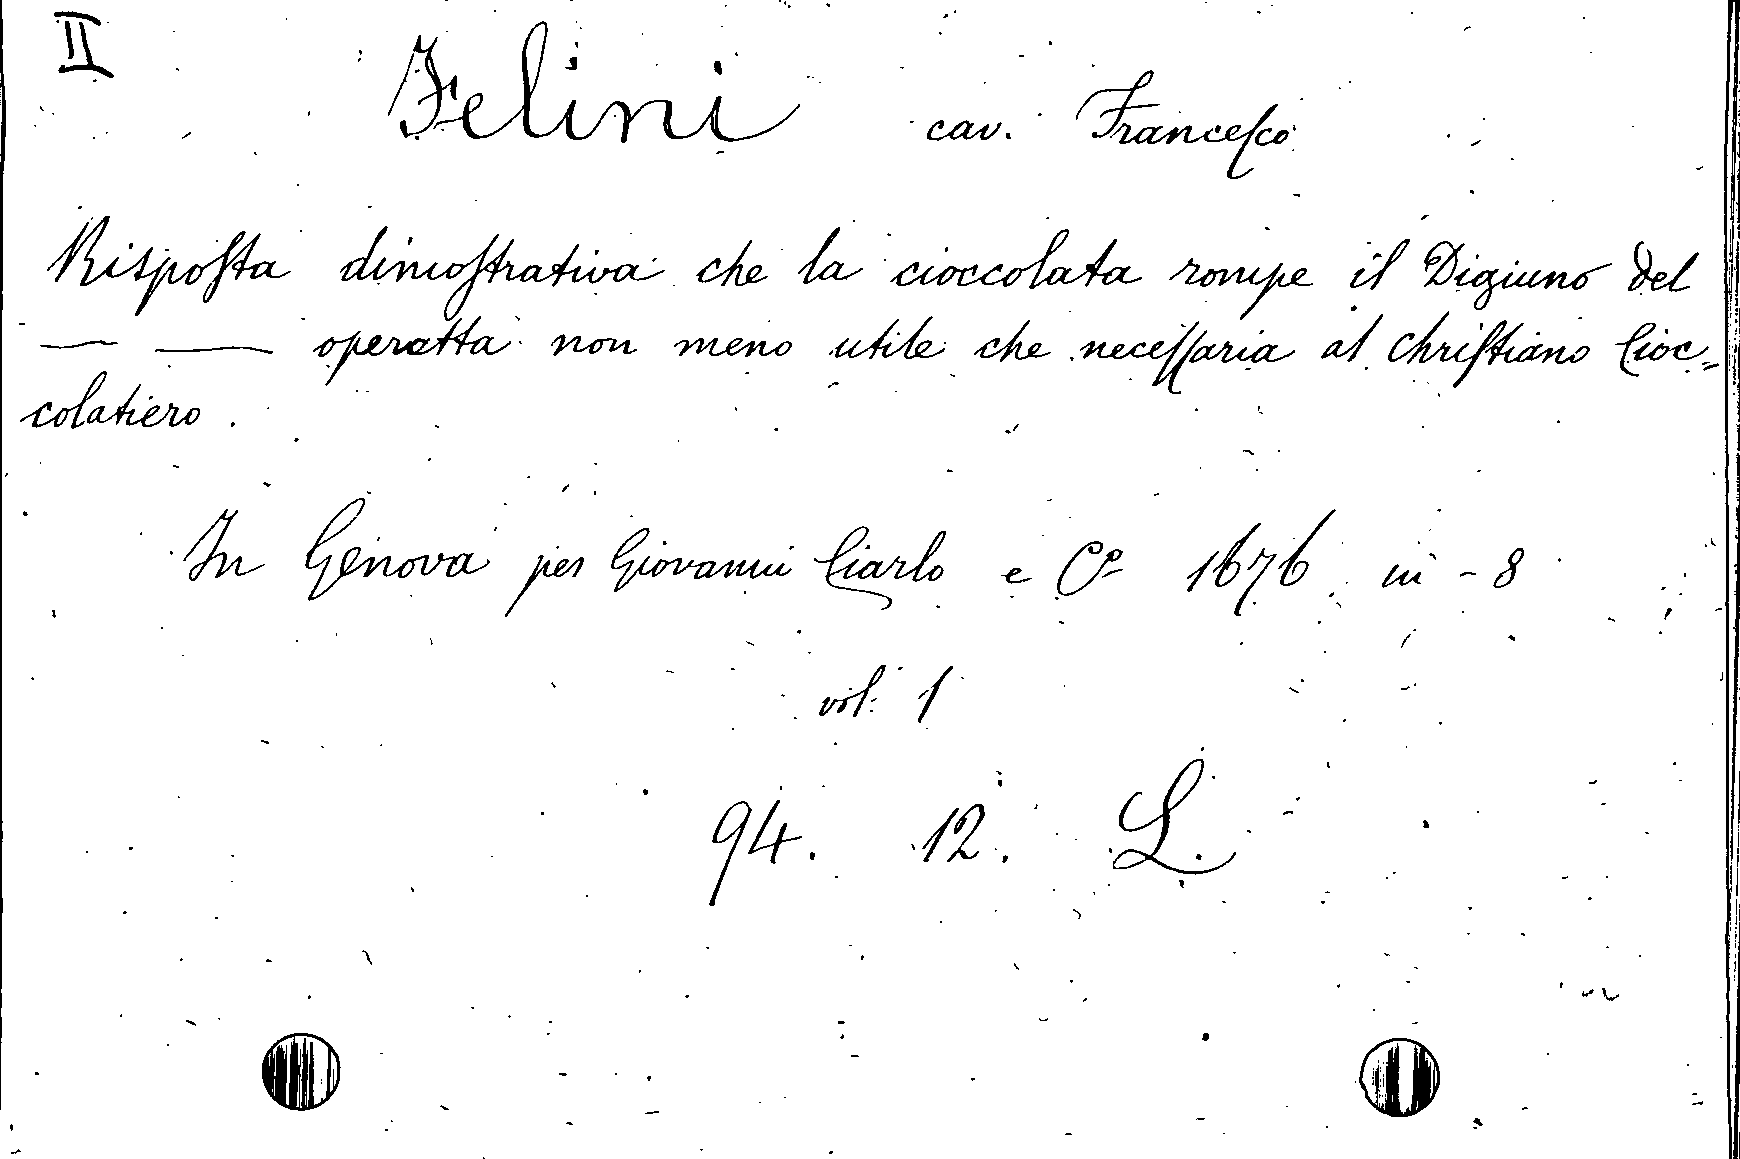 II
Felini cav. Franceſco
Risposta dimoſtrativa che la cioccolata rompe il Digiuno del
— — operetta non meno utile che neceſſaria al Chriſtiano Cioc=
colatiero.
In Genova per Giovanni Ciarlo e Cº 1676 in - 8
vol. 1
94. 12. L.